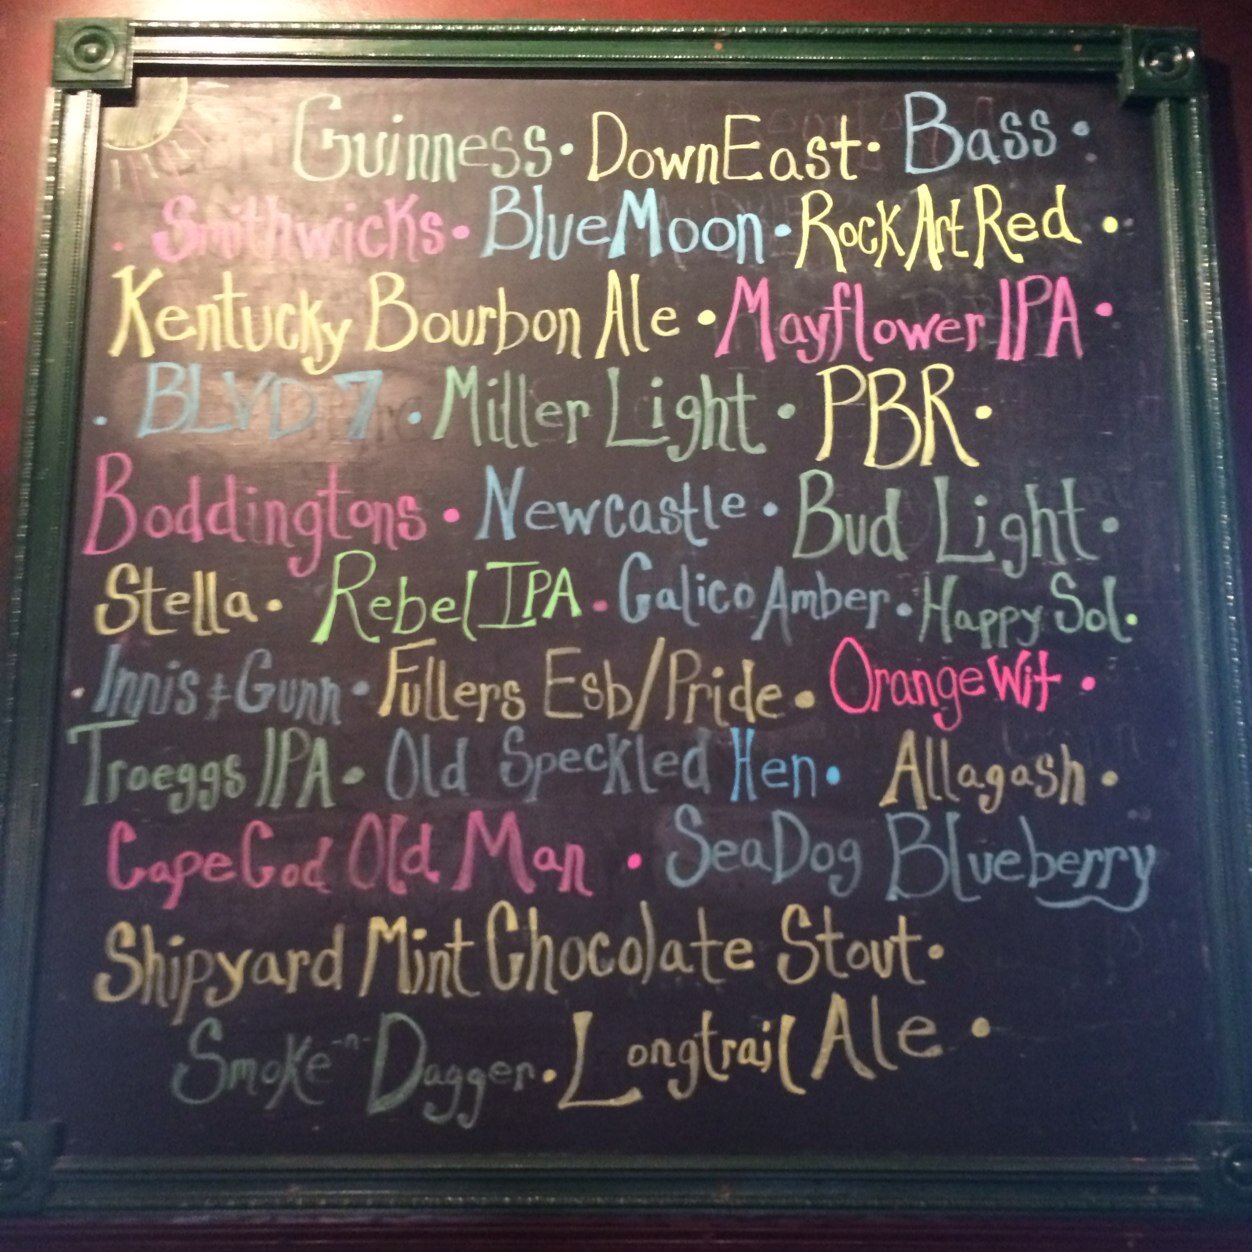 Guinness • DownEast • Bass •
• Smithwicks • Blue Moon • Rock Art Red •
Kentucky Bourbon Ale • Mayflower IPA •
• BLVD 7 • Miller Light • PBR •
Boddingtons • Newcastle • Bud Light •
Stella • Rebel IPA • Calico Amber • Happy Sol •
• Innis & Gunn • Fullers Esb/Pride • Orange Wit •
Troeggs IPA • Old Speckled Hen • Allagash •
Cape Cod Old Man • Sea Dog Blueberry
Shipyard Mint Chocolate Stout •
Smoke -n- Dagger • Longtrail Ale •